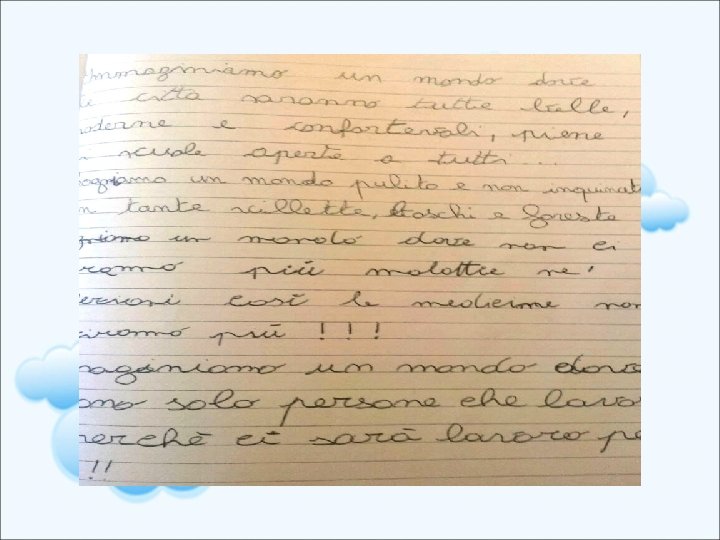 Immaginiamo un mondo dove
città saranno tutte belle,
oderne e confortevoli, piene
scuole aperte a tutti...
aginiamo un mondo pulito e non inquinat
n tante villette, boschi e foreste
un mondo dove non ci
ranno più malattie ne'
così le medicine non
viranno più !!!
maginiamo un mondo dove
solo persone che lavo
perchè ci sarà lavoro pe
!!